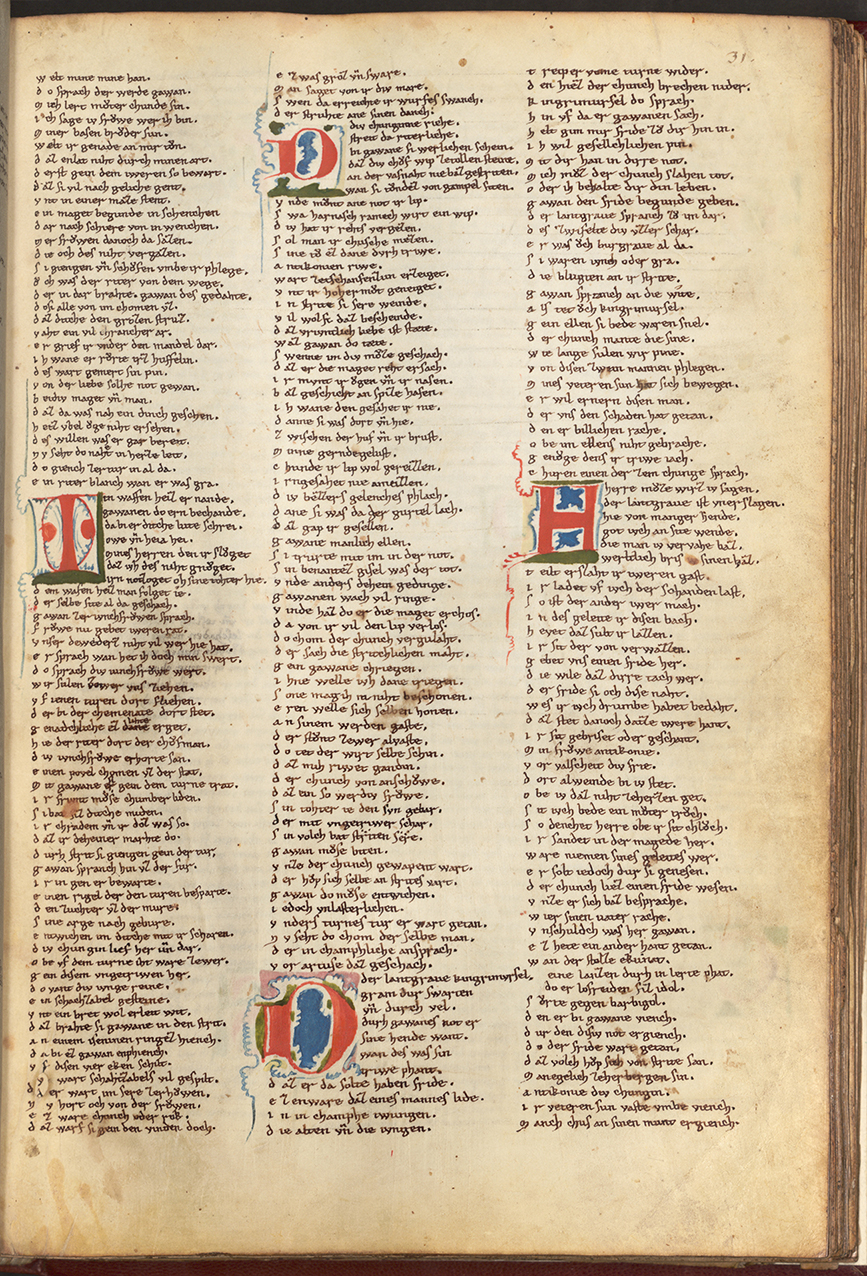 31.
w elt mine mine han.
d o sprach der werde gawan.
m ich lert moͮter chunde sin.
i ch sage iv froͮwe wer ih bin.
m iner basen broͮder sun.
w elt ir genade an mir toͮn.
d az enlat niht durch minen art.
d erst gein dem iweren so bewart.
d az si vil nach geliche gent.
v nt in einer maze stent.
e in maget begunde in schenchen
d ar nach schiere von in wenchen.
m er froͮwen danoch da sazen.
d ie och des niht vergazen.
s i giengen vn̄ schoͮfen vmbe ir phlege.
o ͮch was der riter von dem wege.
d er in dar brahte. gawan des gedahte.
d o si alle von im chomen vz.
d az diche den grozen struz.
v aht ein vil chrancher ar.
e r greif ir vnder den mandel dar.
i h wane er roͮrte irz huffelin.
d es wart gemert sin pin.
v on der liebe solhe not gewan.
b eidiv maget vn̄ man.
d az da was nah ein dinch geschehen.
h etez vbel oͮge niht ersehen.
d es willen was er gar bereit.
n v seht do naht in herze leit.
d o giench zer tur in al da.
e in riter blanch wan er was gra.
I n waffen heiz er nande,
gawanen do ern bechande.
da bi er diche lute schrei.
owe vn̄ heia hei.
mines herren den ir sloͮget
daz ivch des niht gnoͮget.
irn notzoget oh sine tohter hie.
d em wafen heiz man folget ie.
d er selbe site al da geschach.
g awan zer ivnchfroͮwen sprach.
f roͮwe nu gebet iweren rat.
v nser dewederz niht vil wer hie hat.
e r sprach wan het ih doch min swert.
d o sprach div iunchfroͮwe wert.
w ir sulen zewer vns ziehen.
v f ienen turen dort fliehen.
d er bi der chemenate dort stet.
g enadchliche ez lihte erget.
h ie der riter dort der choͮfman.
d iv ivnchfroͮwe erhorte san.
e inen povel chomen vz der stat.
m it gawane er gein dem turne trat.
i r friunt moͮse chumber liden.
s i bat siz diche miden.
i r chradem vn̄ ir doz was so.
d az ir deheiner marhte do.
d urh strit si giengen gein der tur,
g awan spranch hin vz der fur.
i r in gen er bewarte.
e inen rigel der den turen besparte.
d en zuchter vz der mure.
s ine arge nach gebure.
e ntwichen im diche mit ir scharen.
d iv chungin lief her vn̄ dar.
o be vf dem turne iht ware zewer.
g ein disem vngetriwen her.
d o vant div vnge reine.
e in schachzabel gesteine.
v nt ein bret wol erleit wit.
d az brahte si gawane in den strit.
a n einem isenninen ringez hiench.
d a bi ez gawan enphiench.
v f disen vier eken schilt.
wart schahzabels vil gespilt.
d er wart im sere zerhoͮwen.
n v hort och von der froͮwen.
e z ware chunch oder roch.
d az warf si gein den vinden doch.
e z was groz vn̄ sware.
m an saget von ir div mare.
s wen da erreichte ir wurfes swanch.
d er struhte ane sinen danch.
D iv chunginne riche.
streit da riterliche.
bi gawane si werlichen schein.
daz div choͮf wip zetollensteine.
an der vasnaht nie baz gestriten.
wan si toͮndez von gampel siten.
v nde moͮnt ane not ir lip.
s wa harnasch ramech wirt ein wip.
d iv hat ir rehts vergezen.
s ol man ir chusche mezen.
s ine toͮ ez dane dvrh triwe.
a ntikonien riwe.
wart zetschanfenzun erzeiget.
v nt ir hoher moͮt geneiget.
i n strite si sere weinde,
v il wol si daz bescheinde.
d az vriuntlich liebe ist state.
w az gawan do tate.
s wenne im div moͮze geschach.
d az er die maget reht ersach.
i r munt ir oͮgen vn̄ ir nasen.
b az geschicht an spize hasen.
i h wane den gesahet ir nie.
d anne si was dort vn̄ hie.
z wischen der huf vn̄ ir brust.
m inne gerndegelust.
c hunde ir lip wol gereizen.
i rngesahet nie ameizen.
d iv bezzers gelenches phlach.
d ane si was da der gurtel lach.
d az gap ir gesellen.
g awane manlich ellen.
s i trurte mit im in der not.
s in benantez gisel was der tot.
v nde anders dehein gedinge.
g awanen wach vil ringe.
v inde haz do er die maget erchos.
d a von ir vil den lip verlos.
d o chom der chunch vergulaht.
d er sach die stritchlichen maht.
g ein gawane chriegen.
i hne welle iv̄ch dane triegen.
s one mag ih in niht beschonen.
e ren welle sich selben honen.
a n sinem werden gaste,
d er stoͮnt ze wer al vaste.
d o tet der wirt selbe schin.
d az mih riwet gandin.
d er chunch von anschoͮwe.
d az ein so werdiv froͮwe.
s in tohter ie den syn gebar.
d er mit vngetriwer schar,
s in volch bat striten sere.
g awan moͮse biten.
v nze der chunch gewapent wart.
d er hoͮp sich selbe an strites vart.
g awan do moͮse entwichen.
i edoch vnlasterlichen.
v nders turnes tur er wart getan.
n v seht do chom der selbe man.
d er in champhliche ansprach.
v or artuse daz geschach.
D er lantgraue kingrimursel,
gram dur swarten
vn̄ durch vel.
durh gawanes not er
sine hende want.
wan des was sin
triwe phant.
d az er da solte haben fride.
e z enware daz eines mannes lide.
i n in champhe twungen.
d ie alten vn̄ die iungen.
t reip er vome turne wider.
d en hiez der chunch brechen nider.
k ingrimursel do sprach.
h in vf da er gawanen sach.
h elt gim mir fride zoͮ dir hin in.
i h wil gesellechlichen pin.
m it dir han in dirre not.
m ich moͮz der chunch slahen tot.
o der ih behalte dir din leben.
g awan den fride begunde geben.
d er lantgraue spranch zoͮ im dar.
d es zwifelte div vzzer schar.
e r was oͮch burgraue al da.
s i waren iunch oder gra.
d ie blugten an ir strite.
g awan spranch an die wite,
a lsʼ tet oͮch kingrimursel.
g ein ellen si bede waren snel.
d er chunch mante die sine.
w ie lange sulen wir pine.
v on disen zwein mannen phlegen.
m ines veteren sun hat sich bewegen.
e r wil ernern disen man.
d er vns den schaden hat getan.
d en er billichen rache.
o be im ellens niht gebrache.
g enoͮge dens ir triwe iach.
c huren einen der zem chunige sprach.
H erre moͮze wirz iv sagen.
der lantgraue ist vnerslagen.
hie von manger hende.
got iv̄ch an site wende.
die man iv vervahe baz.
werltlich bris iv sinen haz.
t eilt erslaht ir iweren gast.
i r ladet vf ivch der schanden last,
s o ist der ander iwer mach.
i n des geleite ir disen bach.
h evet daz sult ir lazzen.
i r sit der von verwazzen.
g ebet vns einen fride her.
d ie wile daz dirre tach wer.
d er fride si och dise naht.
w es ir ivch drumbe habet bedaht,
d az stet danoch dazze iwere hant.
i r sit gebriset oder geschant.
m in froͮwe antikonie.
v or valscheit div frie.
d ort al weinde bi iv stet.
o be iv daz niht zeherzen get.
s it iv̄ch bede ein moͮter troͮch.
s o denchet herre obe ir sit chloͮch.
i r sandet in der magede her.
w are niemen sines geleites wer.
e r solt iedoch dur si genesen.
d er chunch liez einen fride wesen.
v nze er sich baz besprache.
w ier sinen vater rache.
v nschuldch was her gawan.
e z hete ein ander hant getan.
w an der stolze ekunat.
eine lanzen durh in lerte phat.
do er iofreiden fiz idol.
f oͮrte gegen barbigol.
d en er bi gawane viench.
d ur den disiv not ergiench.
d o der fride wart getan.
d az volch hoͮp sich von strite san.
m anegelich zeherbergen sin.
a ntikonie div chungin.
i r veteren sun vaste vmbe viench.
m anch chus an sinen munt ergiench.